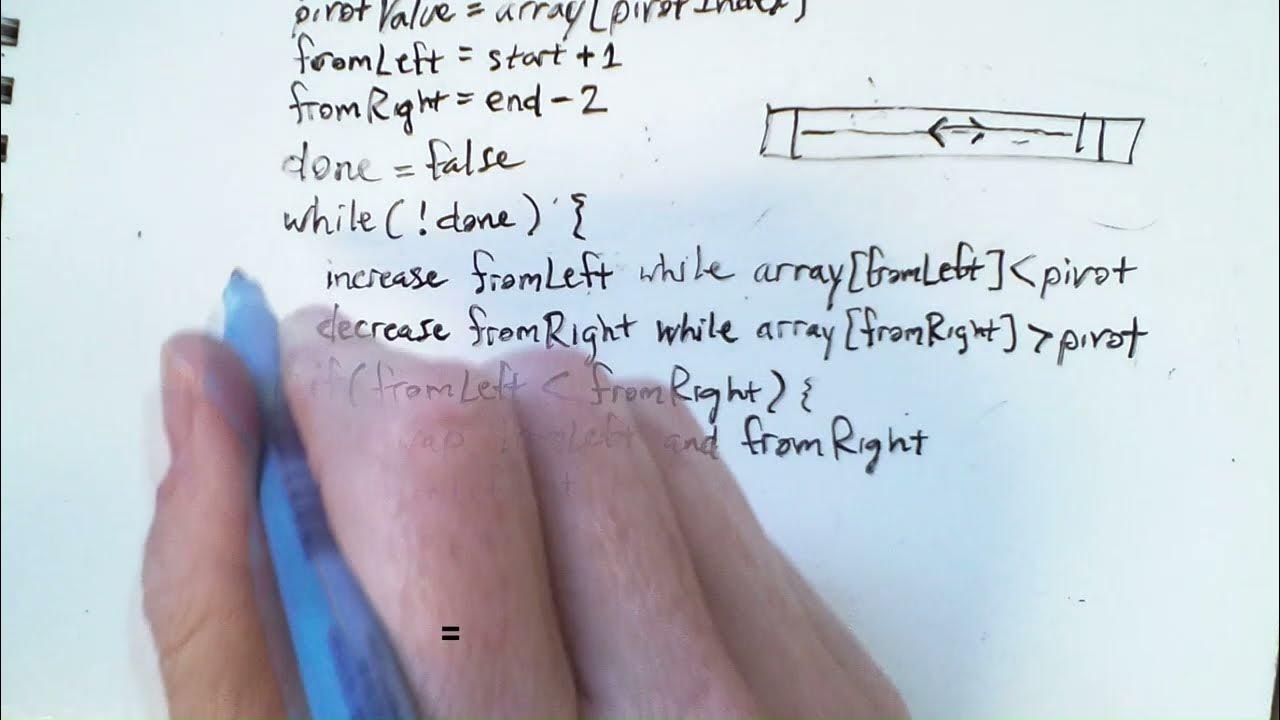 pivotValue = array[pivotIndex]
fromLeft = start + 1
fromRight = end - 2
done = false
while (!done) {
increase fromLeft while array[fromLeft] < pivot
decrease fromRight while array[fromRight] > pivot
if (fromLeft < fromRight) {
fromLeft and fromRight
=